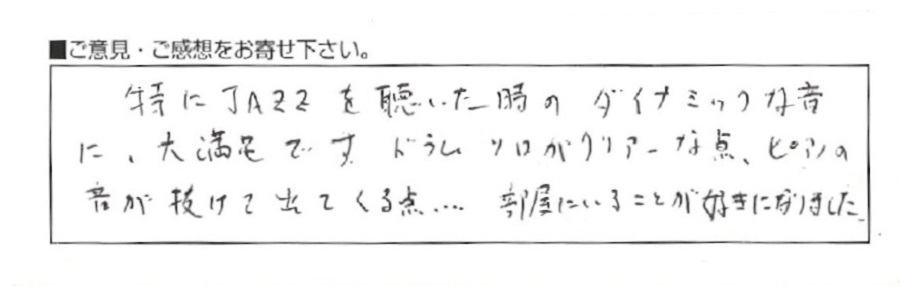 ■ご意見・ご感想をお寄せ下さい。
特にJAZZを聴いた時のダイナミックな音
に、大満足です。ドラムソロがクリアーな点、ピアノの
音が抜けて出てくる点…. 部屋にいることが好きになりました。